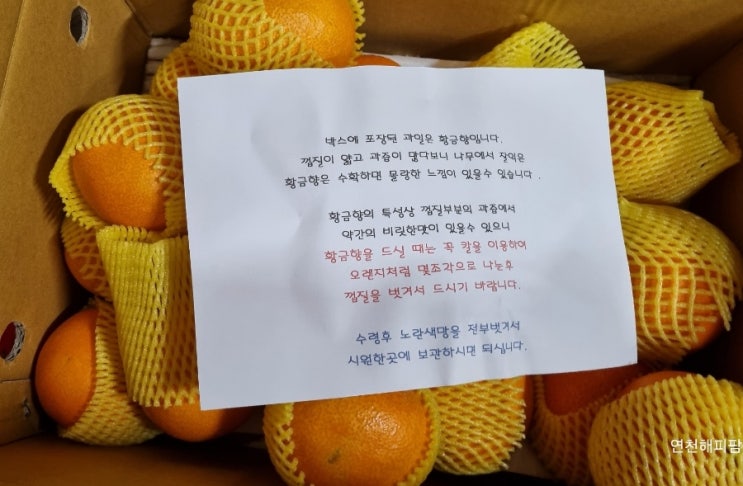 박스에 포장된 과일은 황금향입니다.
껍질이 얇고 과즙이 많다보니 나무에서 잘익은
황금향은 수확하면 물랑한 느낌이 있을수 있습니다 .
황금향의 특성상 껍질부분의 과즙에서
약간의 비릿한맛이 있을수 있으니
황금향을 드실 때는 꼭 칼을 이용하여
오렌지처럼 몇조각으로 나눈후
껍질을 벗겨서 드시기 바랍니다.
수령후 노란색망을 전부벗겨서
시원한곳에 보관하시면 되십니다.
연천해피팜